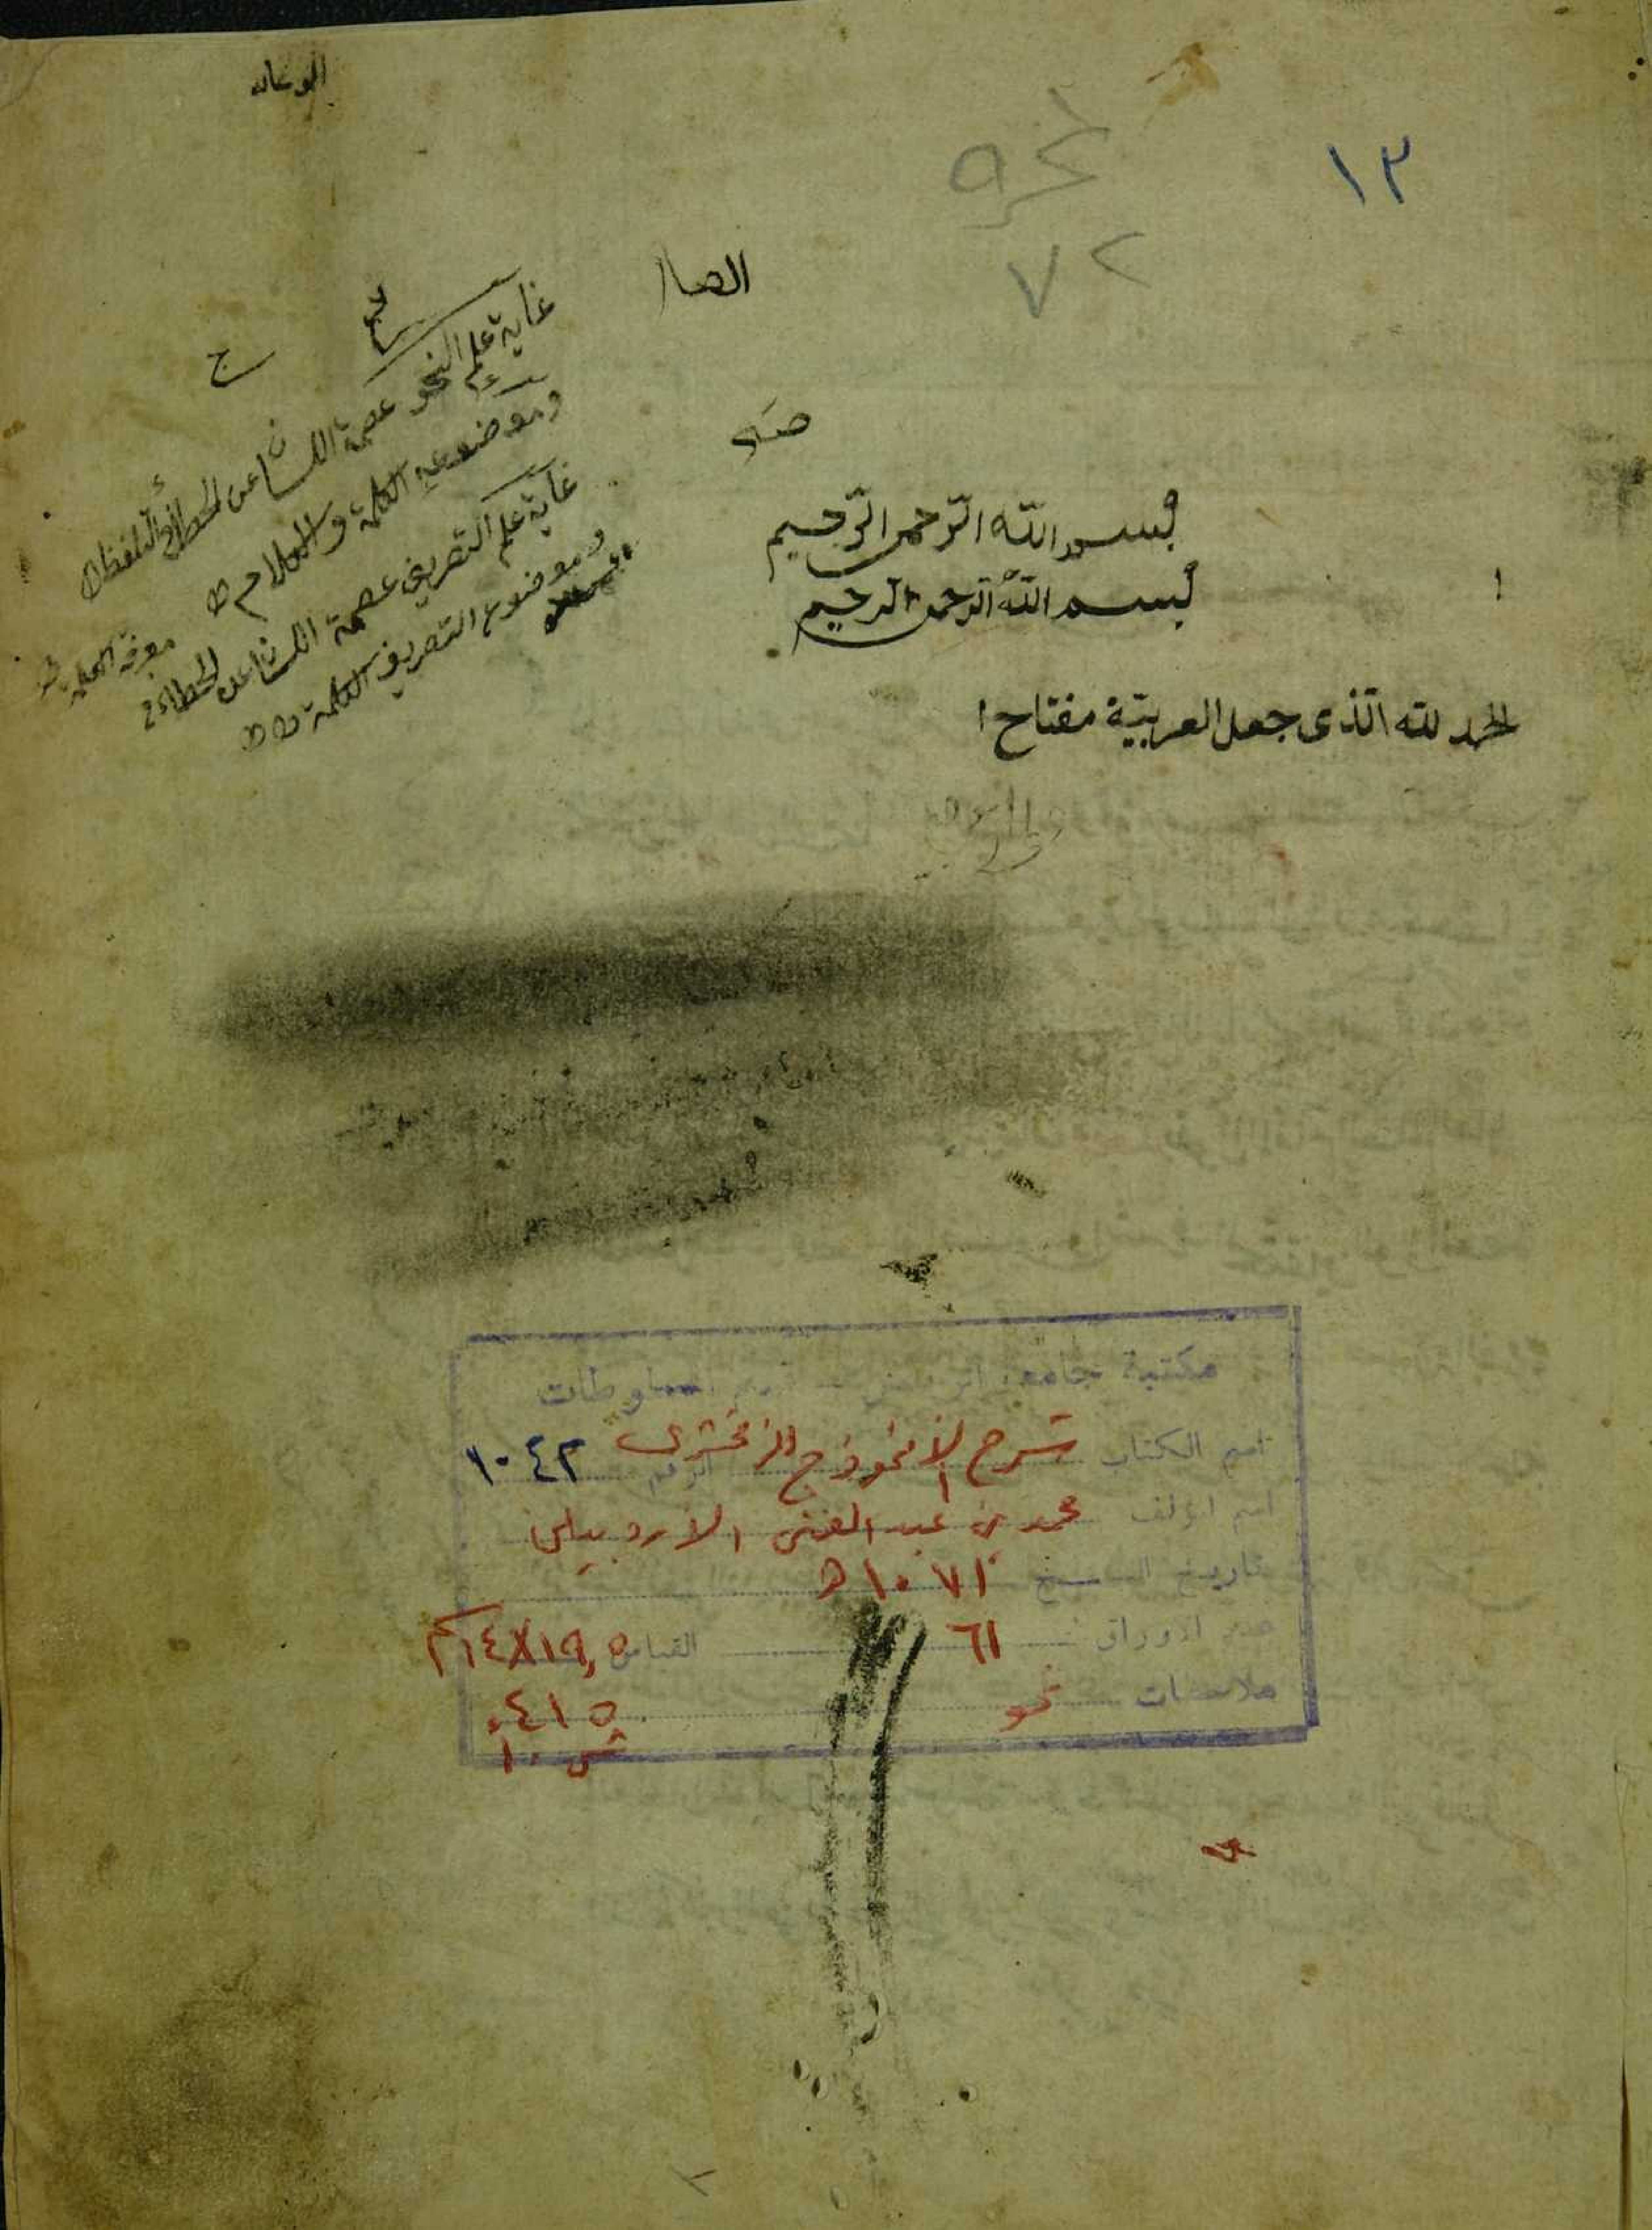 ١٢
٧٢
الصا
صد
ج
غاية علم النحو عصمة اللسان عن الخطاء
وموضوعه الكلمة والكلام ط
غاية علم التصريف عصمة اللسان عن الخطاء
وموضوع التصريف الكلمة ط ط
بسم الله الرحمن الرحيم
بسم الله الرحمن الرحيم
الحمد لله الذى جعل العربية مفتاح ا
مكتبة جامعة الرياض قسم المخطوطات
اسم الكتاب شرح الأنموذج للزمخشرى الرقم ١٠٤٢
اسم المؤلف محمد بن عبد الغنى الاردبيلى
تاريخ النسخ ١٠٧١ ه
عدد الاوراق ٦١ القياس ١٩,٥×١٤
ملاحظات نحو
٤١٥
ش . ا